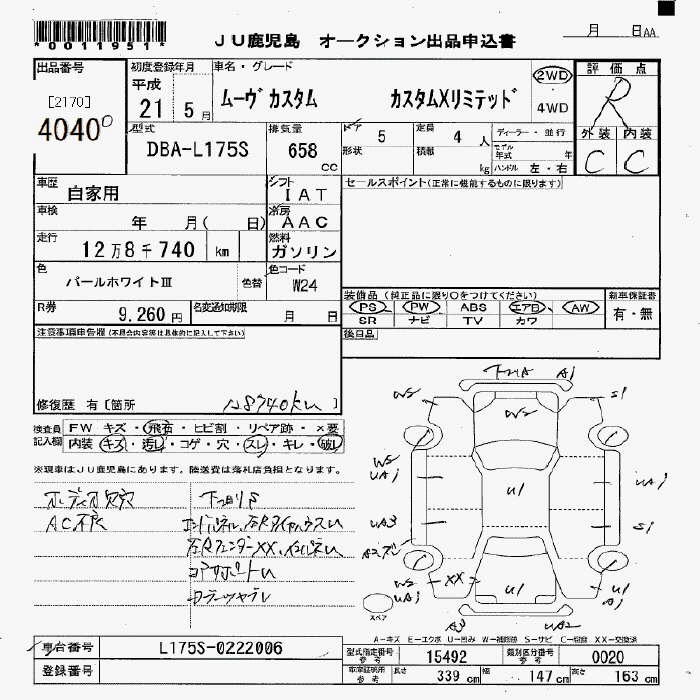 *0011951*
JU鹿児島 オークション出品申込書
月 日AA
出品番号
[2170]
4040
初度登録年月
平成
21 5月
車名・グレード
ムーヴ カスタム カスタムXリミテッド
2WD
4WD
評価点
R
外装 内装
C C
型式
DBA-L175S
排気量
658
cc
ドア 5
形状
定員 4 人
積載 kg
ディーラー・並行
モデル年式 年
ハンドル 左・右
車歴
自家用
シフト
IAT
セールスポイント(正常に機能するものに限ります)
車検
年 月( 日)
冷房
AAC
走行
12万8千740 km
燃料
ガソリン
色
パールホワイトⅢ
色替
色コード
W24
R券
9,260円
名変通知期限
月 日
装備品(純正品に限り○をつけてください)
PS PW ABS エアB AW
SR ナビ TV カワ
新車保証書
有・無
注意事項申告欄(不具合内容等は具体的に記入して下さい)
後日品
修復歴 有[箇所
128740km]
検査員記入欄
FW キズ・飛石・ヒビ割・リペア跡・×要
内装 キズ・汚レ・コゲ・穴・スレ・キレ・破レ
※現車はJU鹿児島にあります。陸送費は落札店負担となります。
オーディオ欠穴
AC不良
下回りS
A1
W2
W2
S1
U1
UA3
S1
XX
U1
A3
UA2
スペア
A-キズ E-エクボ U-凹み W-補修跡 S-サビ C-腐蝕 XX-交換済
車台番号
L175S-0222006
登録番号
型式指定番号
参考
15492
類別区分番号
参考
0020
車庫証明用
参考
長さ 339 cm 幅 147 cm 高さ 163 cm